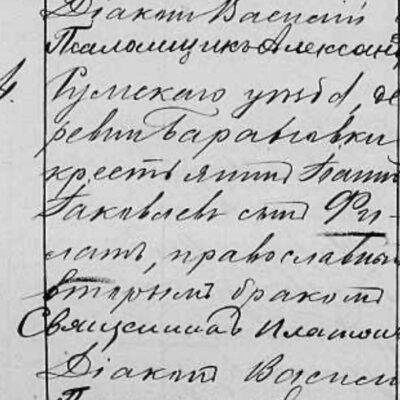 Діаконъ Василій
Псаломщикъ Алексан
Сумскаго уѣзда, де
ревни Барановки
крестьянинъ
Яковлевъ сынъ Фи-
латъ, православный
вторымъ бракомъ
Священникъ Платонъ
Діаконъ Васил